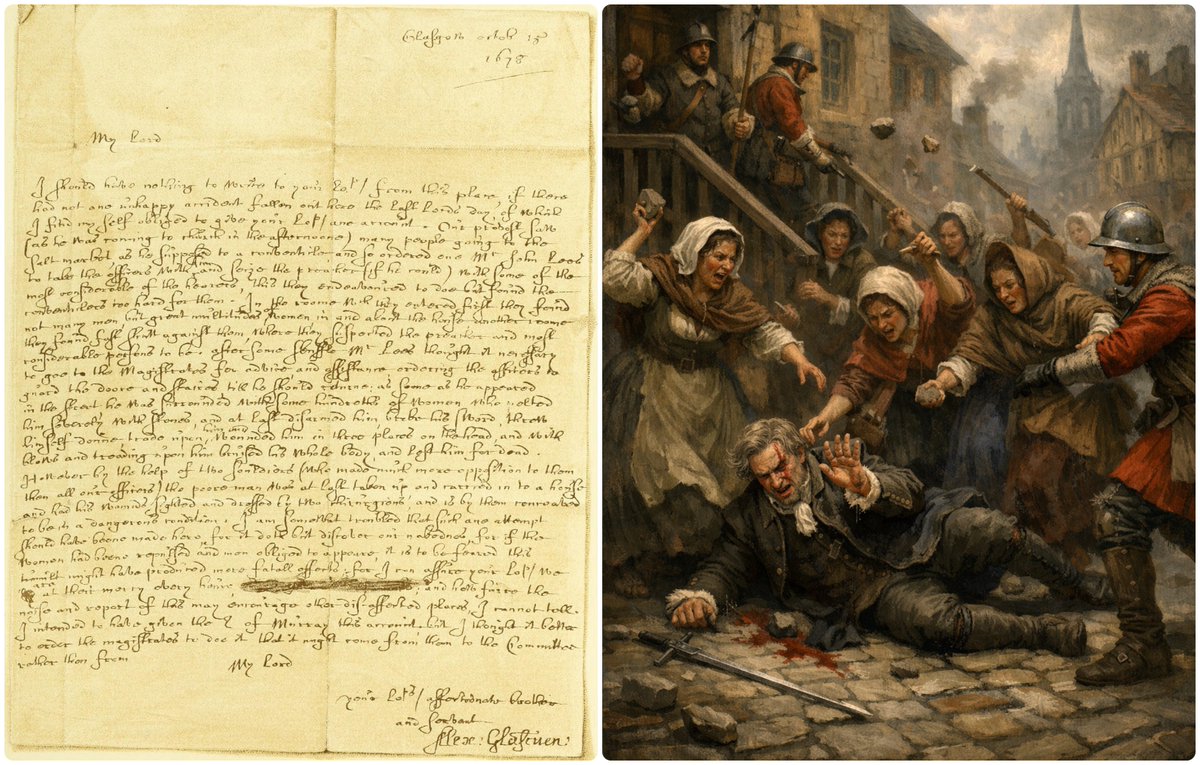 Glasgow octob 15
1678
My Lord
I should have nothing to write to your Lop/ from this place, if there
had not one unhappy accident fallen out here the last Lords day, of which
I find my self oblized to give your Lop/ ane account. Our provost saw
(as he was coming to church in the afternoone) many people going to the
Salt market as he supposed to a conventicle and so ordered one Mr John Lees
to take the officers with and seize the preacher (if he could) with some of the
most considerable of the hearers. This they endeavoured to doe but found the
conventiclers too hard for them. In the roome wch they entered first they found
not many men but great multitudes women in and about the house another roome
they found fast shutt against them, where they suspected the preacher and most
considerable persons to be. after some skuffle Mr Lees thought it necessary
to goe to the Magistrates for advice and assistance ordering the officers to
guard the doore and staires till he should returne, as soone as he appeared
in the street he was surrounded with some hundreths of women who pelted
him severely with stones, and at last disarmed him, broke his sword, threw
himself doune, trade upon him and wounded him in three places on the head, and with
blows and treading upon him bruised his whole body, and left him for dead.
However by the help of two souldiers (who made much more opposition to them
then all our officers) the poore man was at last taken up and carried in to a house
and had his wounds sighted and dressed by two chirurgions, and is by them conceaved
to be in a dangerous condition. I am somewhat troubled that such ane attempt
should have beene made here, for it doth but discover our nakednes, for if the
women had beene repulsed and men oblized to appeare, it is to be feared this
tumult might have produced more fatall effects, for I can assure your Lop/ we
are at their mercy every houre, and how farre the
noise and report of this may encourage other disaffected places, I cannot tell.
I intended to have given the E of Murray this account, but I thought it better
to order the magistrates to doe it that it might come from them to the Committee
rather then from
My Lord
your Lops/ affectionate brother
and servant
Alex: Glascuen: